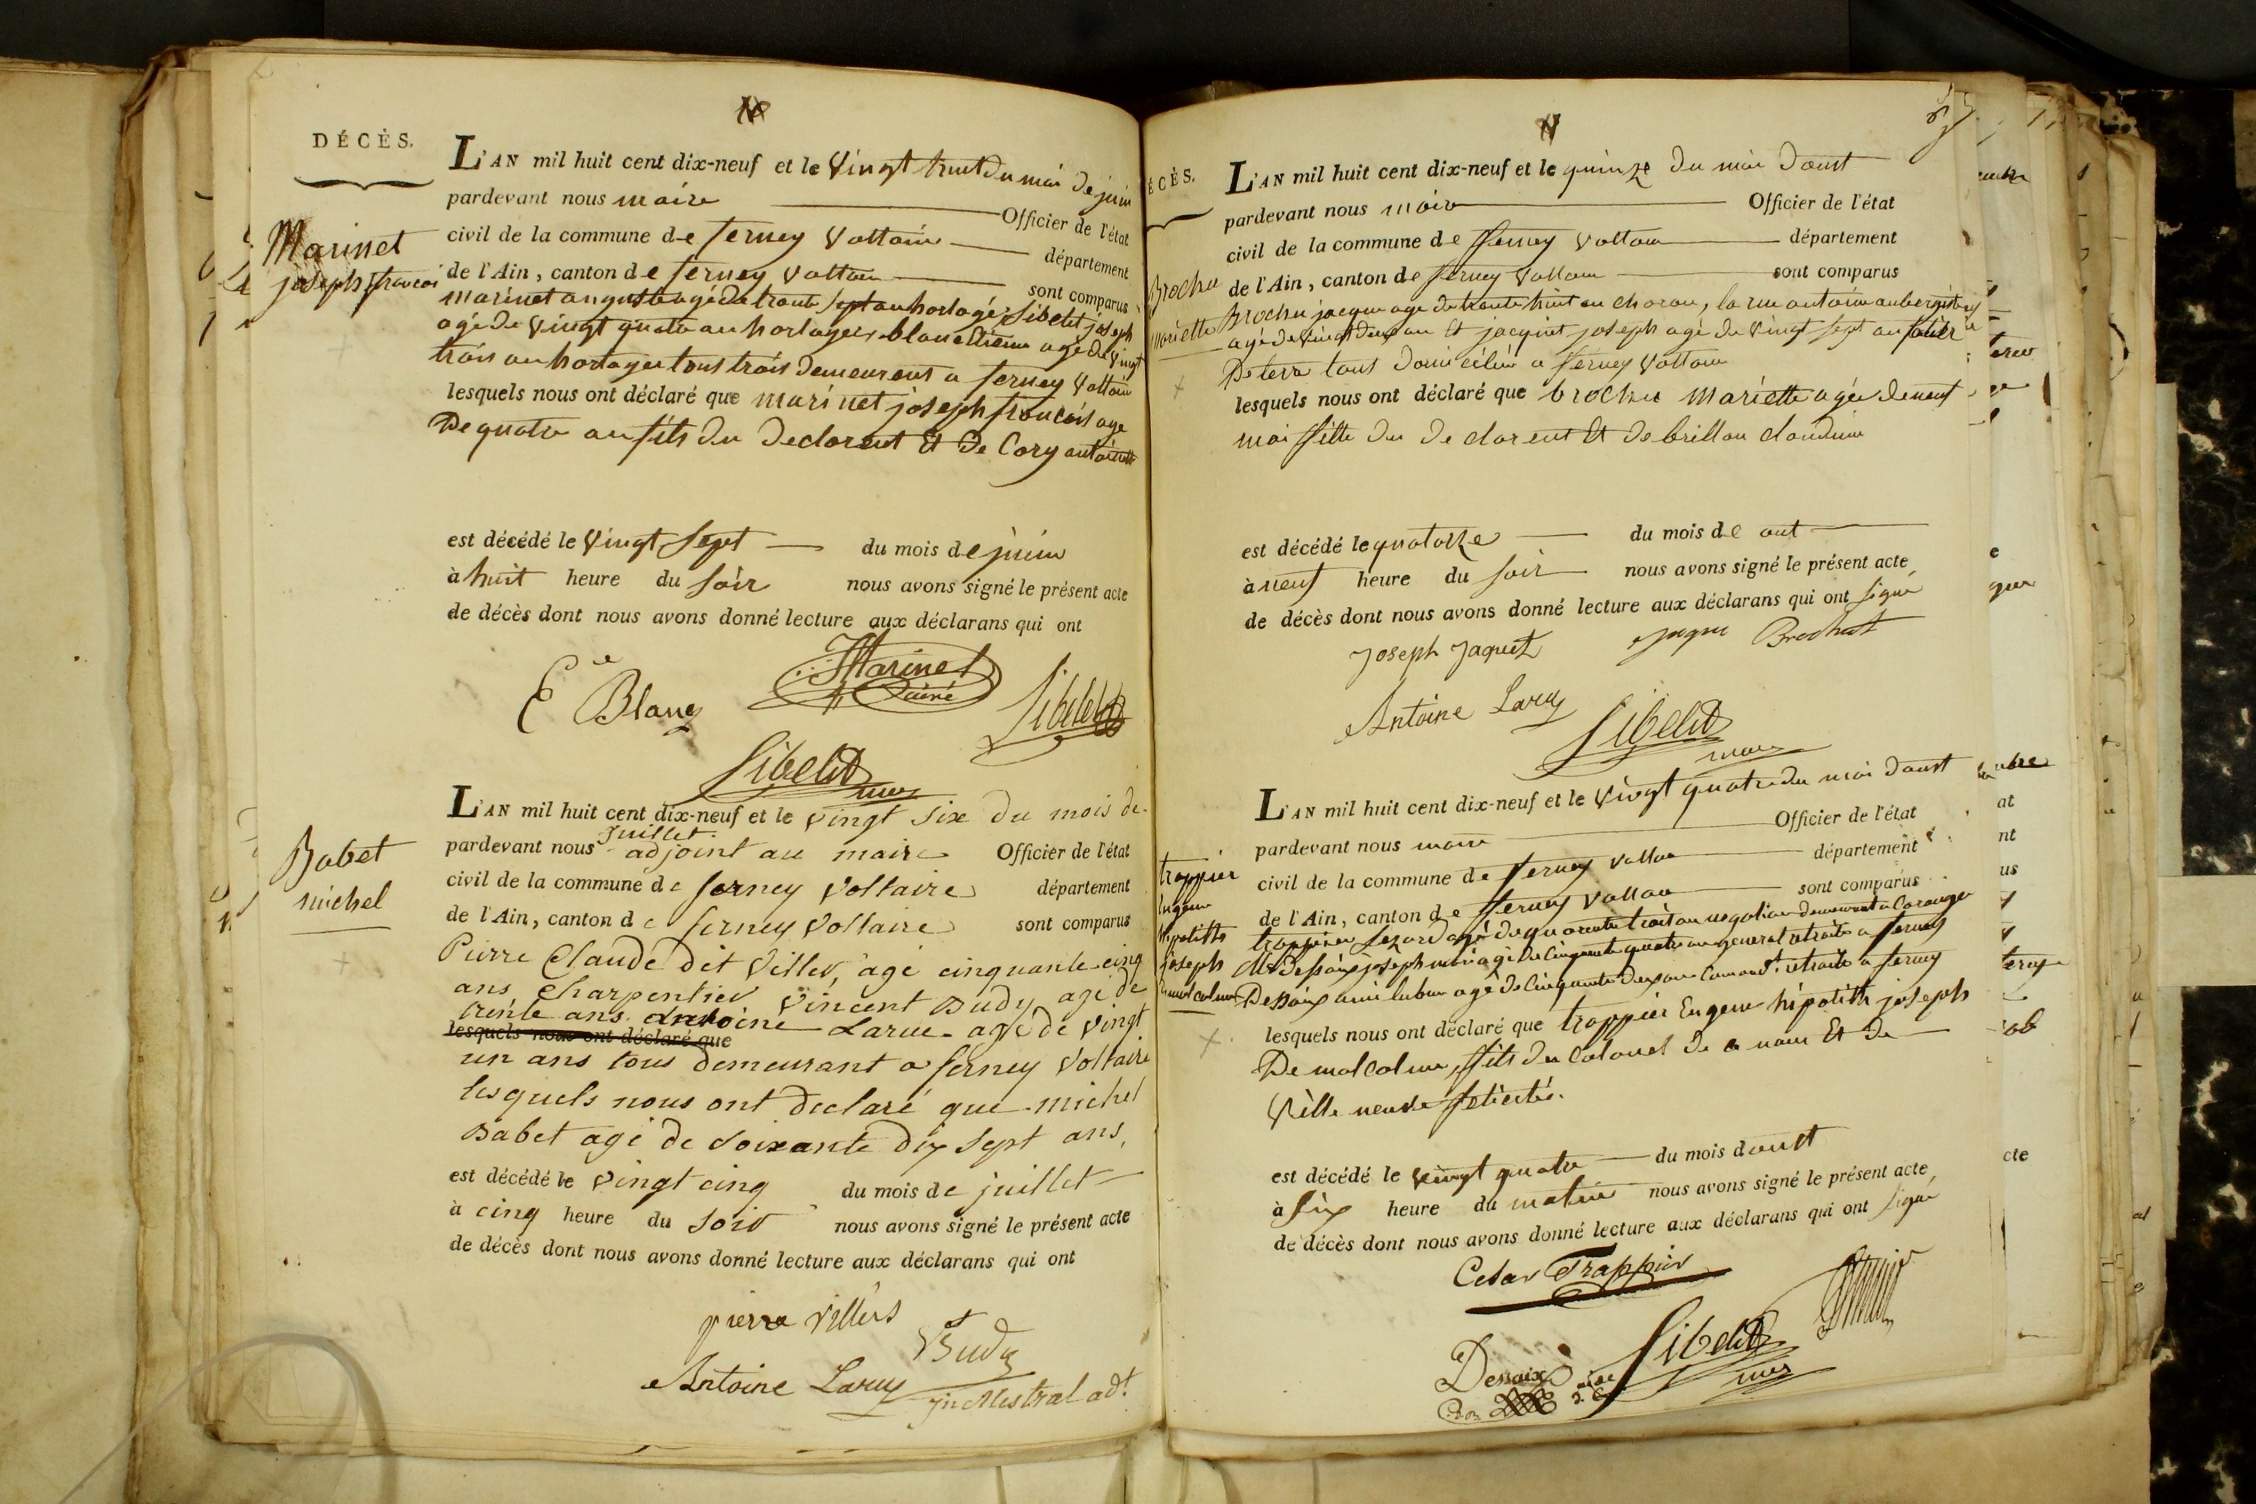 DÉCÈS.
L'AN mil huit cent dix-neuf et le Vingt huit du moi de juin
pardevant nous maire Officier de l'état
civil de la commune de ferney Voltaire département
de l'Ain, canton de ferney Voltaire sont comparus
Marinet
joseph françois
marinet auguste agé de trante sept an horlogé, Sibelit joseph
agé de Vingt quatre an horloger, blanc Etienne agé de Vingt
trois an horloger tous trois demeurent a ferney Voltaire
lesquels nous ont déclaré que marinet joseph francois age
De quatre an fils du declarent Et de Cory antoinette
est décédé le Vingt Sept du mois de juin
à huit heure du soir nous avons signé le présent acte
de décès dont nous avons donné lecture aux déclarans qui ont
Ene Blanc
Marinet ainé
Sibelit
Sibelit
maire
L'AN mil huit cent dix-neuf et le vingt six du mois de
juillet
pardevant nous adjoint au maire Officier de l'état
civil de la commune de ferney Voltaire département
de l'Ain, canton de ferney Voltaire sont comparus
Babet
michel
Pierre Claude dit Viller, agé cinquante cinq
ans Charpentier Vincent Budy agé de
trente ans Antoine Larue agé de vingt
lesquels nous ont déclaré que
un ans tous demeurant a ferney Voltaire
lesquels nous ont declaré que michel
Babet agé de soixante dix sept ans,
est décédé le vingt cinq du mois de juillet
à cinq heure du soir nous avons signé le présent acte
de décès dont nous avons donné lecture aux déclarans qui ont
pierre villers
Budy
Antoine Larue
Mestral adt.
ÉCÈS.
L'AN mil huit cent dix-neuf et le quinze du moi daust
pardevant nous maire Officier de l'état
civil de la commune de ferney Voltaire département
de l'Ain, canton de ferney Voltaire sont comparus
Brochu
mariette
Brochu jacque age de trante huit an charon, la rue antoine aubergiste
agé de vingt deux an Et jacquet joseph agé de Vingt Sept an
tous domicilié a ferney Voltaire
lesquels nous ont déclaré que brochu mariette agée de neuf
moi fille du declarent Et de brillon claudine
est décédé le quatorze du mois de aut
à neuf heure du soir nous avons signé le présent acte
de décès dont nous avons donné lecture aux déclarans qui ont signé
Joseph Jaquet
jaque Brochut
Antoine Larue
Sibelit
maire
L'AN mil huit cent dix-neuf et le Vingt quatre du moi daust
pardevant nous maire Officier de l'état
civil de la commune de ferney Voltaire département
de l'Ain, canton de ferney Voltaire sont comparus
trappier
Eugene
hipolitte
joseph
De malcolme
trappier Sezard agé de quarante trois an negotian demeurent a
Mr Dessaix joseph marie agé de Cinquante quatre an general retraité a ferney
Dessaix aimé agé de Cinquante Deux an Comand.t retraité a ferney
lesquels nous ont déclaré que trappier Eugene hipolitte joseph
De malcolme, fils du Colonel de ce nom Et de
Ville neuve felicité.
est décédé le Vingt quatre du mois daust
à Six heure du matin nous avons signé le présent acte
de décès dont nous avons donné lecture aux déclarans qui ont signé
Cesar Trappier
Dessaix
Sibelit
maire
cte